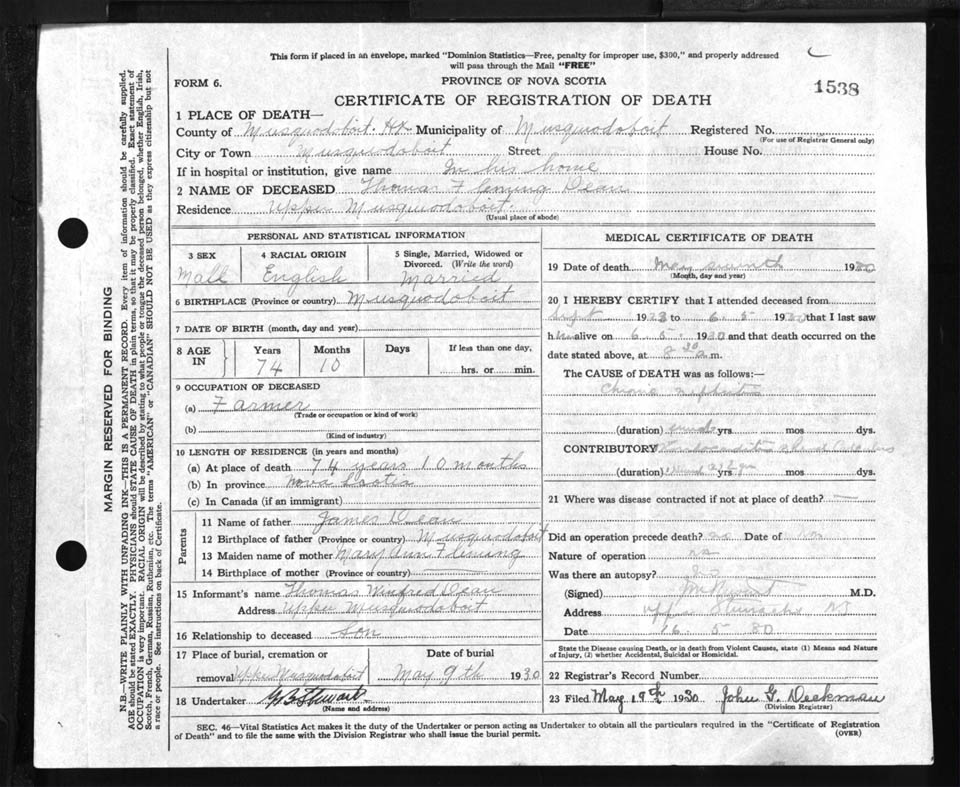 This form if placed in an envelope, marked "Dominion Statistics—Free, penalty for improper use, $300," and properly addressed
will pass through the Mail "FREE"
FORM 6.
PROVINCE OF NOVA SCOTIA
1538
CERTIFICATE OF REGISTRATION OF DEATH
1 PLACE OF DEATH—
County of Musquodoboit Hx Municipality of Musquodoboit Registered No.
(For use of Registrar General only)
City or Town Musquodoboit Street House No.
If in hospital or institution, give name In his home
2 NAME OF DECEASED Thomas Fleming Dean
Residence Upper Musquodoboit
(Usual place of abode)
PERSONAL AND STATISTICAL INFORMATION
3 SEX 4 RACIAL ORIGIN 5 Single, Married, Widowed or
Divorced. (Write the word)
Mall English Married
6 BIRTHPLACE (Province or country) Musquodoboit
7 DATE OF BIRTH (month, day and year)
8 AGE IN Years Months Days If less than one day,
74 10 hrs. or min.
9 OCCUPATION OF DECEASED
(a) Farmer
(Trade or occupation or kind of work)
(b)
(Kind of industry)
10 LENGTH OF RESIDENCE (in years and months)
(a) At place of death 74 years 10 months
(b) In province Nova Scotia
(c) In Canada (if an immigrant)
Parents
11 Name of father James Dean
12 Birthplace of father (Province or country) Musquodoboit
13 Maiden name of mother Mary Ann Fleming
14 Birthplace of mother (Province or country)
15 Informant's name Thomas Winfred Dean
Address Upper Musquodoboit
16 Relationship to deceased Son
17 Place of burial, cremation or Date of burial
removal Upper Musquodoboit May 9th 1930
18 Undertaker
(Name and address)
MEDICAL CERTIFICATE OF DEATH
19 Date of death May 1930
(Month, day and year)
20 I HEREBY CERTIFY that I attended deceased from
19 to 6.5 1930 that I last saw
h alive on 6.5. 1930 and that death occurred on the
date stated above, at 8 30 a m.
The CAUSE of DEATH was as follows:—
Chronic nephritis
(duration) yrs. mos dys.
CONTRIBUTORY
(duration) mos dys.
21 Where was disease contracted if not at place of death?
Did an operation precede death? no Date of
Nature of operation no
Was there an autopsy?
(Signed) M.D.
Address
Date 16 5 30
State the Disease causing Death, or in death from Violent Causes, state (1) Means and Nature
of Injury, (2) whether Accidental, Suicidal or Homicidal.
22 Registrar's Record Number
23 Filed May 19th 1930 John G. Deekman
(Division Registrar)
SEC. 46—Vital Statistics Act makes it the duty of the Undertaker or person acting as Undertaker to obtain all the particulars required in the "Certificate of Registration
of Death" and to file the same with the Division Registrar who shall issue the burial permit.
(OVER)
MARGIN RESERVED FOR BINDING
N.B.—WRITE PLAINLY WITH UNFADING INK—THIS IS A PERMANENT RECORD. Every item of information should be carefully supplied.
AGE should be stated EXACTLY. PHYSICIANS should STATE CAUSE OF DEATH in plain terms, so that it may be properly classified. Exact statement of
OCCUPATION is very important. RACIAL ORIGIN will be described by stating to what people or tongue the deceased person belonged, whether English, Irish,
Scotch, French, German, Russian, Ruthenian, etc. The terms "AMERICAN" or "CANADIAN" SHOULD NOT BE USED as they express citizenship but not
a race or people. See instructions on back of Certificate.